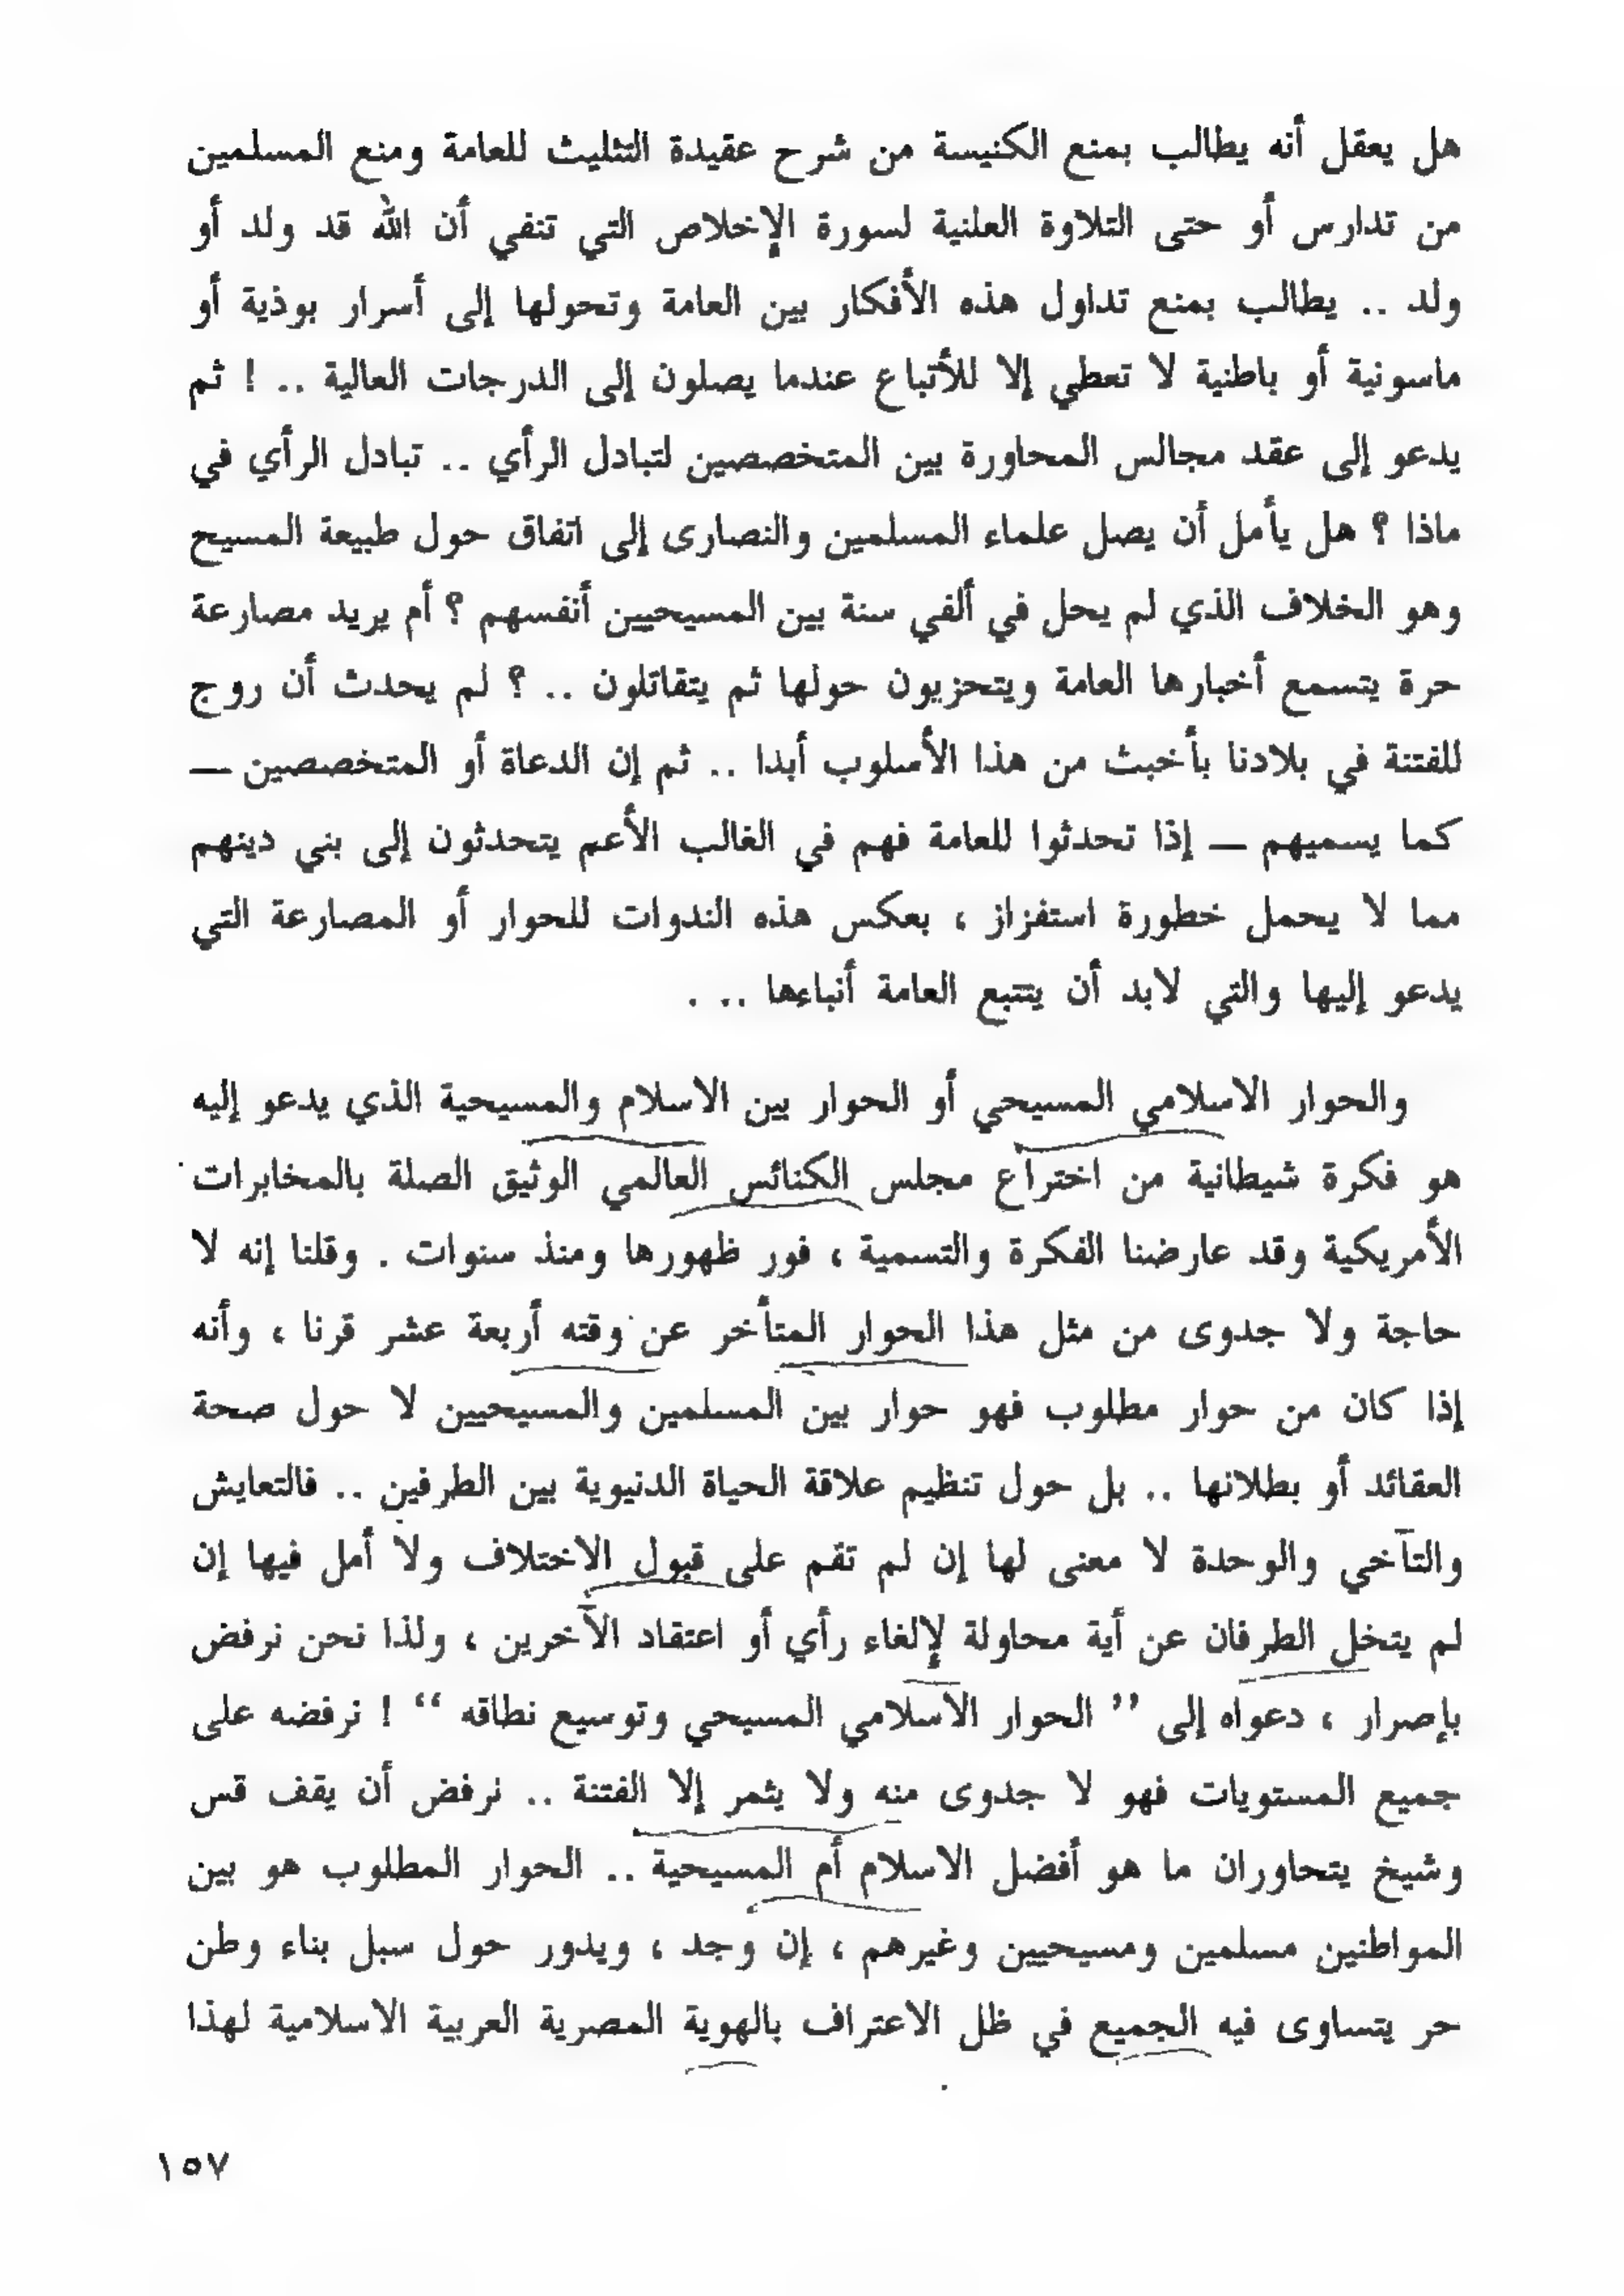 هل يعقل أنه يطالب بمنع الكنيسة من شرح عقيدة التثليث للعامة ومنع المسلمين
من تدارس أو حتى التلاوة العلنية لسورة الإخلاص التي تنفي أن الله قد ولد أو
ولد .. يطالب بمنع تداول هذه الأفكار بين العامة وتحولها إلى أسرار بوذية أو
ماسونية أو باطنية لا تعطي إلا للأتباع عندما يصلون إلى الدرجات العالية .. ! ثم
يدعو إلى عقد مجالس المحاورة بين المتخصصين لتبادل الرأي .. تبادل الرأي في
ماذا ؟ هل يأمل أن يصل علماء المسلمين والنصارى إلى اتفاق حول طبيعة المسيح
وهو الخلاف الذي لم يحل في ألفي سنة بين المسيحيين أنفسهم ؟ أم يريد مصارعة
حرة يتسمع أخبارها العامة ويتحزبون حولها ثم يتقاتلون .. ؟ لم يحدث أن روج
للفتنة في بلادنا بأخبث من هذا الأسلوب أبدا .. ثم إن الدعاة أو المتخصصين —
كما يسميهم — إذا تحدثوا للعامة فهم في الغالب الأعم يتحدثون إلى بني دينهم
مما لا يحمل خطورة استفزاز ، بعكس هذه الندوات للحوار أو المصارعة التي
يدعو إليها والتي لابد أن يتتبع العامة أنباءها .. .
والحوار الاسلامي المسيحي أو الحوار بين الاسلام والمسيحية الذي يدعو إليه
هو فكرة شيطانية من اختراع مجلس الكنائس العالمي الوثيق الصلة بالمخابرات
الأمريكية وقد عارضنا الفكرة والتسمية ، فور ظهورها ومنذ سنوات . وقلنا إنه لا
حاجة ولا جدوى من مثل هذا الحوار المتأخر عن وقته أربعة عشر قرنا ، وأنه
إذا كان من حوار مطلوب فهو حوار بين المسلمين والمسيحيين لا حول صحة
العقائد أو بطلانها .. بل حول تنظيم علاقة الحياة الدنيوية بين الطرفين .. فالتعايش
والتآخي والوحدة لا معنى لها إن لم تقم على قبول الاختلاف ولا أمل فيها إن
لم يتخل الطرفان عن أية محاولة لإلغاء رأي أو اعتقاد الآخرين ، ولذا نحن نرفض
بإصرار ، دعواه إلى ” الحوار الاسلامي المسيحي وتوسيع نطاقه “ ! نرفضه على
جميع المستويات فهو لا جدوى منه ولا يثمر إلا الفتنة .. نرفض أن يقف قس
وشيخ يتحاوران ما هو أفضل الاسلام أم المسيحية .. الحوار المطلوب هو بين
المواطنين مسلمين ومسيحيين وغيرهم ، إن وجد ، ويدور حول سبل بناء وطن
حر يتساوى فيه الجميع في ظل الاعتراف بالهوية المصرية العربية الاسلامية لهذا
١٥٧